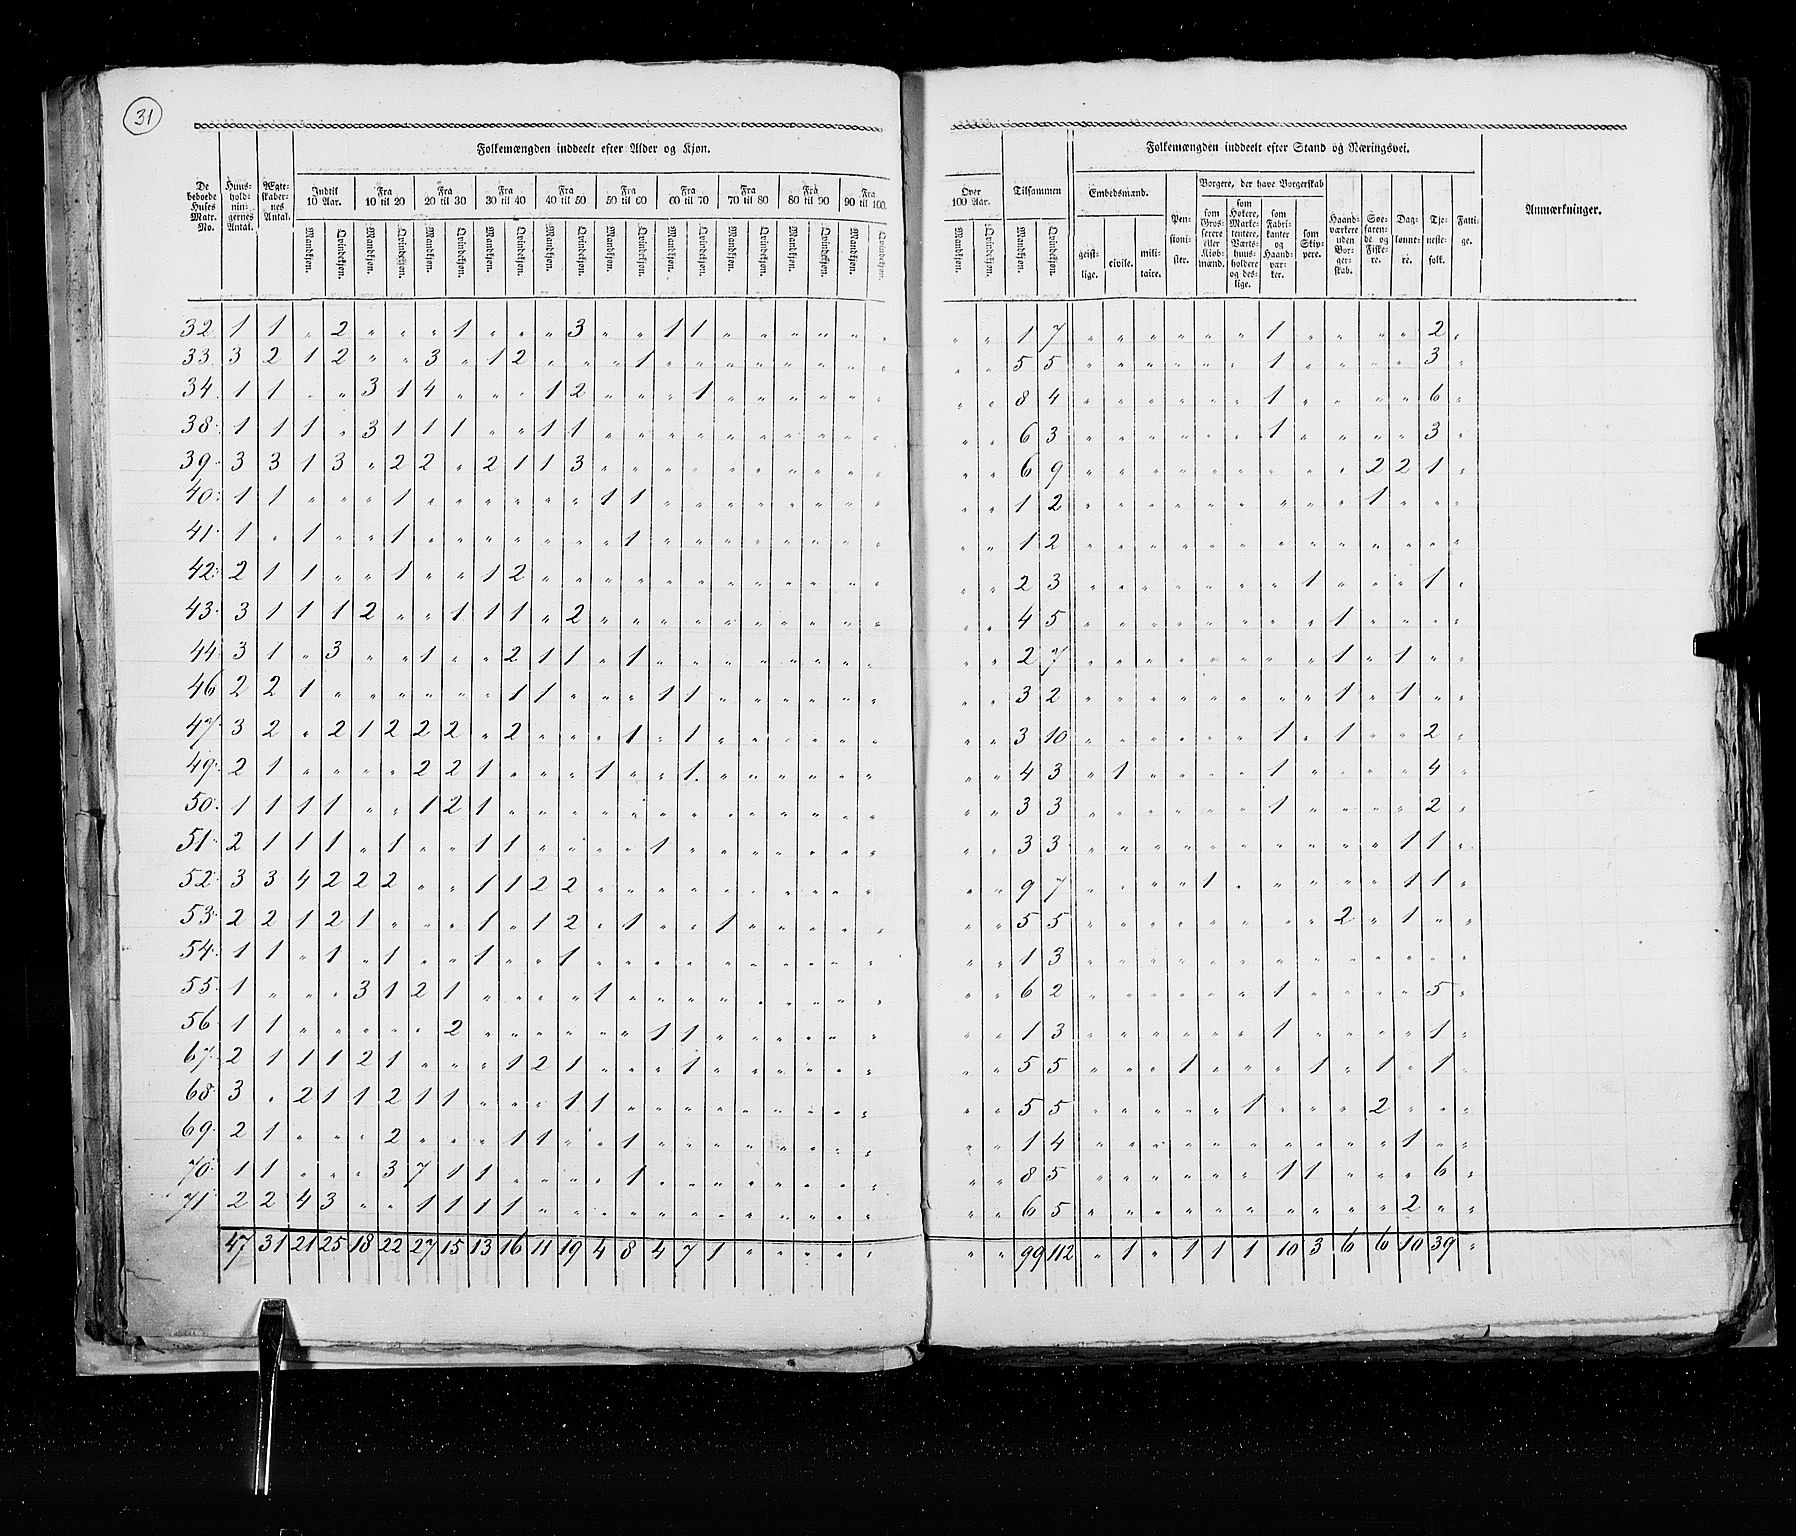 31
Folkemængden inddeelt efter Alder og Kjøn.
Folkemængden inddeelt efter Stand og Næringsvei.
De beboede Huses Matr. No. | Huus-hold-nin-gernes Antal. | Ægte-skaber-nes Antal. | Indtil 10 Aar. | Fra 10 til 20 | Fra 20 til 30 | Fra 30 til 40 | Fra 40 til 50 | Fra 50 til 60 | Fra 60 til 70 | Fra 70 til 80 | Fra 80 til 90 | Fra 90 til 100. | Over 100 Aar. | Tilsammen | Embedsmænd. | Pen-sioni-ster. | Borgere, der have Borgerskab | Haand-værkere uden Bor-ger-skab. | Søe-faren-de og Fiske-re. | Dag-lønne-re. | Tje-neste-folk. | Fatti-ge. | Anmærkninger.
Mandkjøn. | Qvindekjøn. | geist-lige. | civile. | mili-taire. | som Gros-serere eller Kiøb-mænd. | som Høkere, Marke-tentere, Værts-huus-holdere og des-lige. | som Fabri-kanter og Haand-vær-ker. | som Skip-pere.
32 1 1 " 2 " " " 1 " " " 3 " " 1 1 " " " " " " " " 1 7 " " " " " " 1 " " " " 2 "
33 3 2 1 2 " " 3 " 1 2 " " " 1 " " " " " " " " " " 5 5 " " " " " " 1 " " " " 3 "
34 1 1 " " 3 1 4 " " " 1 2 " " " 1 " " " " " " " " 8 4 " " " " " " 1 " " " " 6 "
38 1 1 1 " 3 1 1 1 " " 1 1 " " " " " " " " " " " " 6 3 " " " " " " 1 " " " " 3 "
39 3 3 1 3 " 2 2 " 2 1 1 3 " " " " " " " " " " " " 6 9 " " " " " " " " " 2 2 1 "
40 1 1 " " " 1 " " " " " " 1 1 " " " " " " " " " " 1 2 " " " " " " " " " 1 " " "
41 1 " 1 " " 1 " " " " " " " 1 " " " " " " " " " " 1 2 " " " " " " " " " " " " "
42 2 1 1 " " 1 " " 1 2 " " " " " " " " " " " " " " 2 3 " " " " " " " 1 " " " 1 "
43 3 1 1 1 2 " " 1 1 1 " 2 " " " " " " " " " " " " 4 5 " " " " " " " " 1 " " " "
44 3 1 " 3 " " 1 " " 2 1 1 " 1 " " " " " " " " " " 2 7 " " " " " " " " 1 " 1 " "
46 2 2 1 " " " " " " 1 1 " " " 1 1 " " " " " " " " 3 2 " " " " " " " " 1 " 1 " "
47 3 2 " 2 1 2 2 2 " 2 " " " 1 " 1 " " " " " " " " 3 10 " " " " " " 1 " 1 " " 2 "
49 2 1 " " " " 2 2 1 " " " 1 " " 1 " " " " " " " " 4 3 " 1 " " " " 1 " " " " 4 "
50 1 1 1 1 " " 1 2 1 " " " " " " " " " " " " " " " 3 3 " " " " " " 1 " " " " 2 "
51 2 1 1 1 " 1 " " 1 1 " " " " 1 " " " " " " " " " 3 3 " " " " " " " " " " 1 1 "
52 3 3 4 2 2 2 " " 1 1 2 2 " " " " " " " " " " " " 9 7 " " " " 1 " " " " " 1 1 "
53 2 2 1 2 1 " " " 1 " 1 2 " 1 " " 1 " " " " " " " 5 5 " " " " " " " " 2 " 1 " "
54 1 1 " 1 " 1 " " 1 " " 1 " " " " " " " " " " " " 1 3 " " " " " " " " " " " " "
55 1 " " " 3 1 2 1 " " " " 1 " " " " " " " " " " " 6 2 " " " " " " 1 " " " " 5 "
56 1 1 " " " " " 2 " " " " " " 1 1 " " " " " " " " 1 3 " " " " " " 1 " " " " 1 "
67 2 1 1 1 2 1 " " " 1 2 1 " " " 1 " " " " " " " " 5 5 " " " 1 " " " 1 " 1 " 1 "
68 3 " 2 1 1 2 1 1 " " " 1 1 " " " " " " " " " " " 5 5 " " " " " 1 " " " 2 " " "
69 2 1 " " " 2 " " " 1 1 " " 1 " " " " " " " " " " 1 4 " " " " " " " " " " 1 " "
70 1 1 " " " 3 7 1 1 " " " " 1 " " " " " " " " " " 8 5 " " " " " " 1 1 " " " 6 "
71 2 2 4 3 " " 1 1 1 1 " " " " " " " " " " " " " " 6 5 " " " " " " " " " " 2 " "
47 31 21 25 18 22 27 15 13 16 11 19 4 8 4 7 1 " " " " " " " 99 112 " 1 " 1 1 1 10 3 6 6 10 39 "